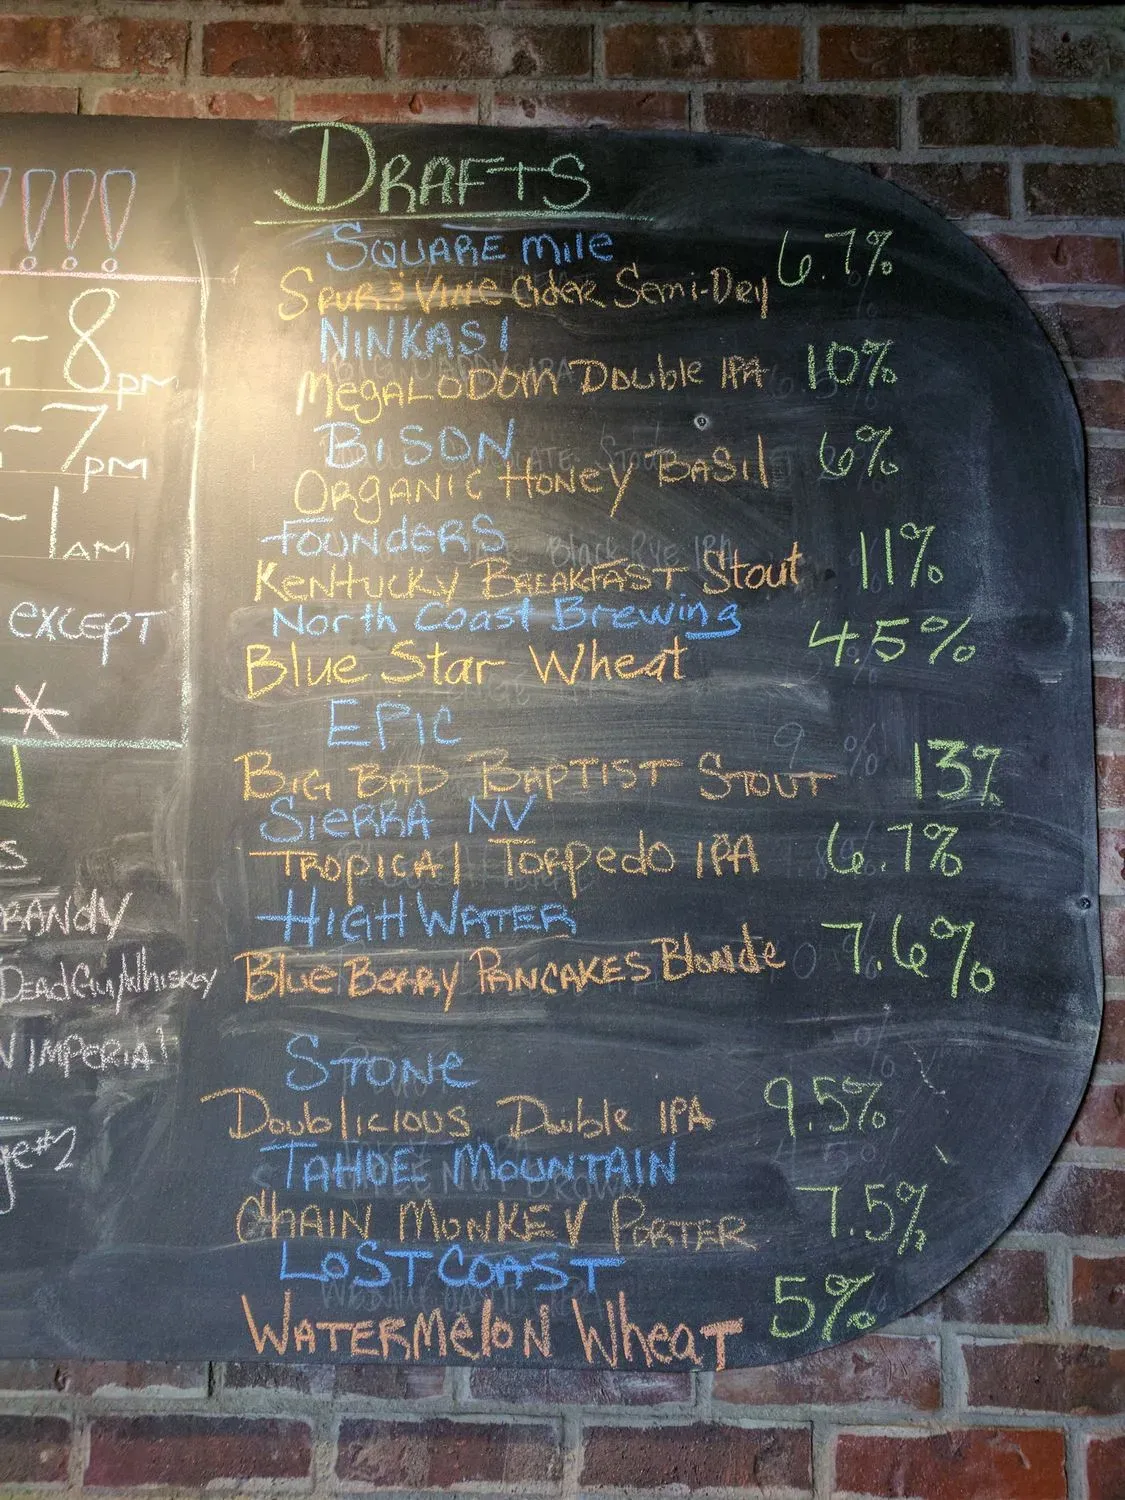 !!!
DRAFTS
SQUARE MILE 6.7%
SPUR & VINE Cider Semi-Dry
NINKASI
MEGALODOM Double IPA 10%
BISON 6%
ORGANIC HONEY BASIL
FOUNDERS 11%
KENTUCKY BREAKFAST Stout
North Coast Brewing 4.5%
Blue Star Wheat
EPIC
BIG BAD BAPTIST STOUT 13%
SIERRA NV
TROPICAL Torpedo IPA 6.7%
HIGH WATER
BlueBERRY PANCAKES Blonde 7.6%
STONE
Doublicious Double IPA 9.5%
TAHOE MOUNTAIN
CHAIN MONKEY PORTER 7.5%
LOST COAST
WATERMELON Wheat 5%
-8PM
-7PM
-1AM
EXCEPT
*
RANDY
DEAD Guy Whiskey
IMPERIAL
#2